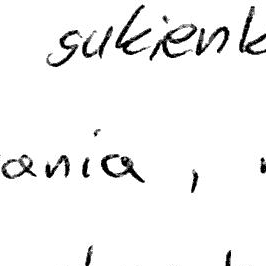 sukienk
ania,